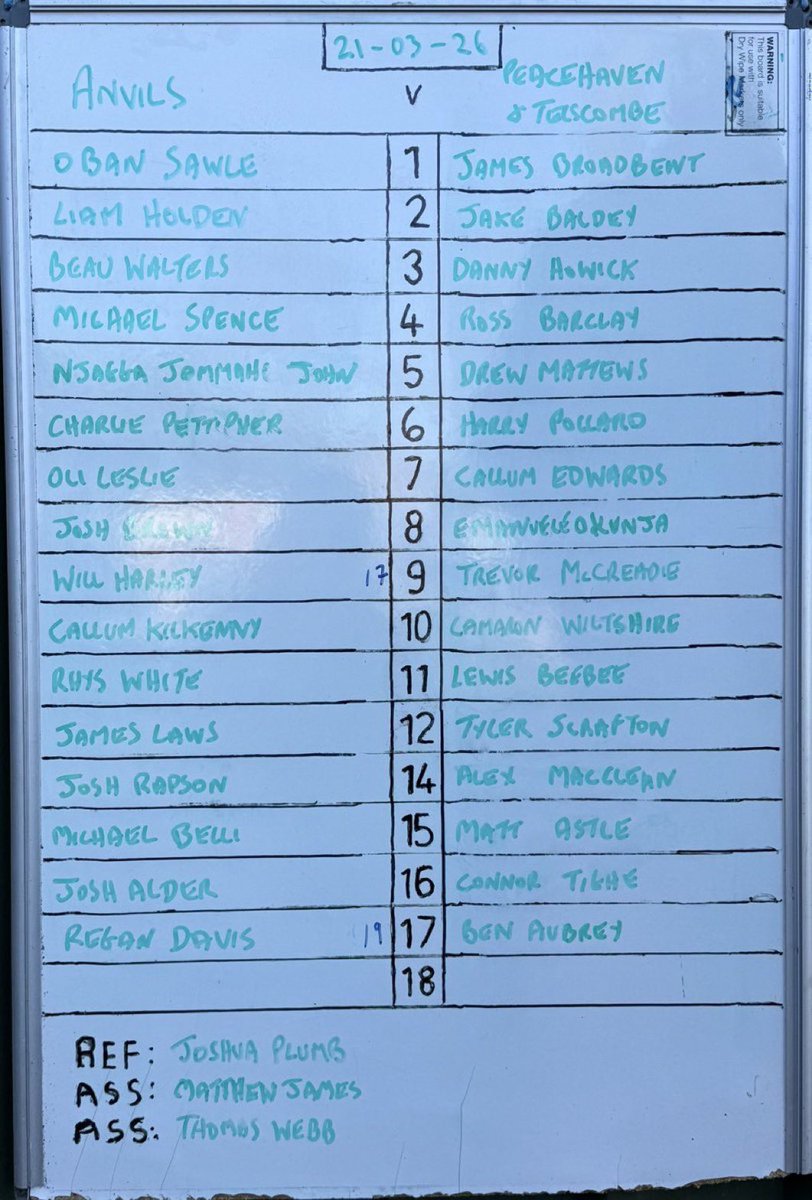 21-03-26
ANVILS V PEACEHAVEN
& TELSCOMBE
WARNING:
This board is suitable
for use with
Dry Wipe Markers only
OBAN SAWLE 1 JAMES BROADBENT
LIAM HOLDEN 2 JAKE BALDEY
BEAU WALTERS 3 DANNY HOWICK
MICHAEL SPENCE 4 ROSS BARCLAY
NJAGGA JOMMAHE JOHN 5 DREW MATTEWS
CHARLIE PETTIPHER 6 HARRY POLLARD
OLI LESLIE 7 CALLUM EDWARDS
JOSH BROWN 8 EMANUELE OKUNJA
WILL HARLEY 17 9 TREVOR McCREADIE
CALLUM KILKENNY 10 CAMARON WILTSHIRE
RHYS WHITE 11 LEWIS BEEBEE
JAMES LAWS 12 TYLER SCRAFTON
JOSH RAPSON 14 ALEX MACCLEAN
MICHAEL BELLI 15 MATT ASTLE
JOSH ALDER 16 CONNOR TIGHE
REGAN DAVIS 19 17 BEN AUBREY
18
REF: JOSHUA PLUMB
ASS: MATTHEW JAMES
ASS: THOMAS WEBB